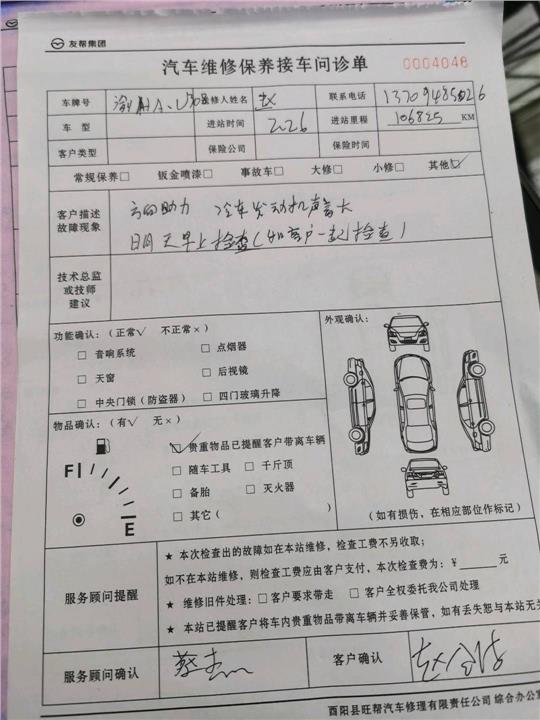 友帮集团
汽车维修保养接车问诊单 0004048
车牌号 送修人姓名 赵 联系电话
车 型 进站时间 2.26 进站里程 106825 KM
客户类型 保险公司 保险时间
常规保养□ 钣金喷漆□ 事故车□ 大修□ 小修□ 其他☑
客户描述 方向助力 冷车发动机声音大
故障现象 明天早上检查(和客户一起检查)
技术总监
或技师
建议
功能确认:(正常√ 不正常×) 外观确认:
□ 音响系统 □ 点烟器
□ 天窗 □ 后视镜
□ 中央门锁(防盗器) □ 四门玻璃升降
物品确认:(有√ 无×)
☑ 贵重物品已提醒客户带离车辆
F □ 随车工具 □ 千斤顶
□ 备胎 □ 灭火器
E □ 其它( )
(如有损伤,在相应部位作标记)
★ 本次检查出的故障如在本站维修,检查工费不另收取;
如不在本站维修,则检查工费应由客户支付,本次检查费为:¥ 元
服务顾问提醒 ★ 维修旧件处理:□ 客户要求带走 □ 客户全权委托我公司处理
★ 本站已提醒客户将车内贵重物品带离车辆并妥善保管,如有丢失恕与本站无关
服务顾问确认 客户确认
酉阳县旺帮汽车修理有限责任公司 综合办公室